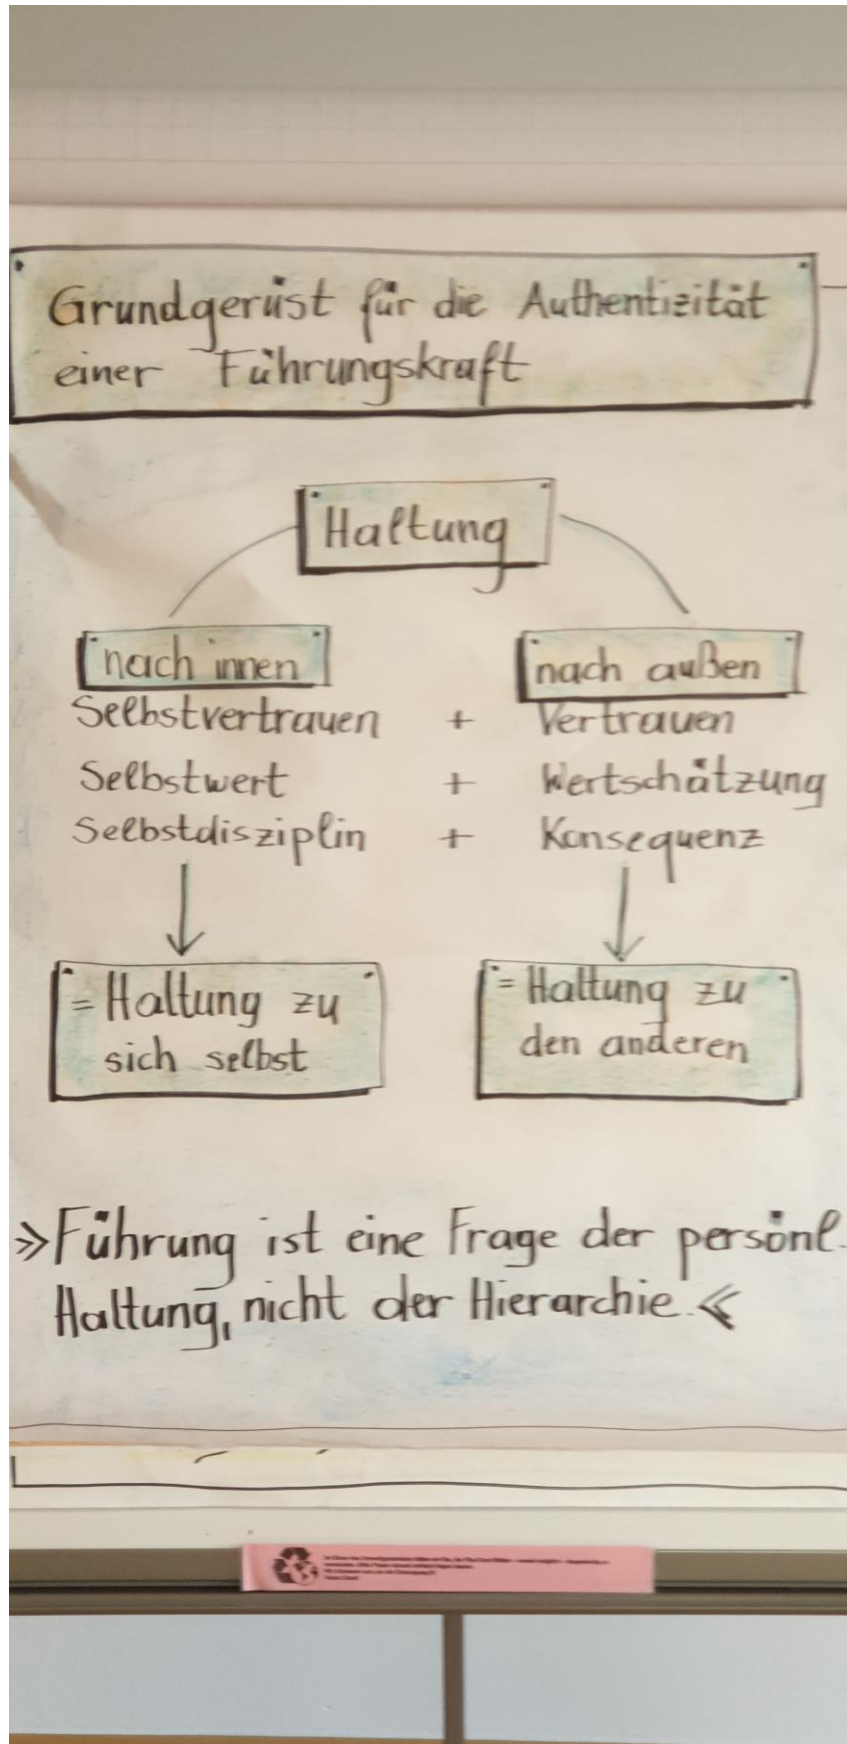 Grundgerüst für die Authentizität
einer Führungskraft
Haltung
nach innen
nach außen
Selbstvertrauen + Vertrauen
Selbstwert + Wertschätzung
Selbstdisziplin + Konsequenz
= Haltung zu
sich selbst
= Haltung zu
den anderen
»Führung ist eine Frage der persönl.
Haltung, nicht der Hierarchie.«